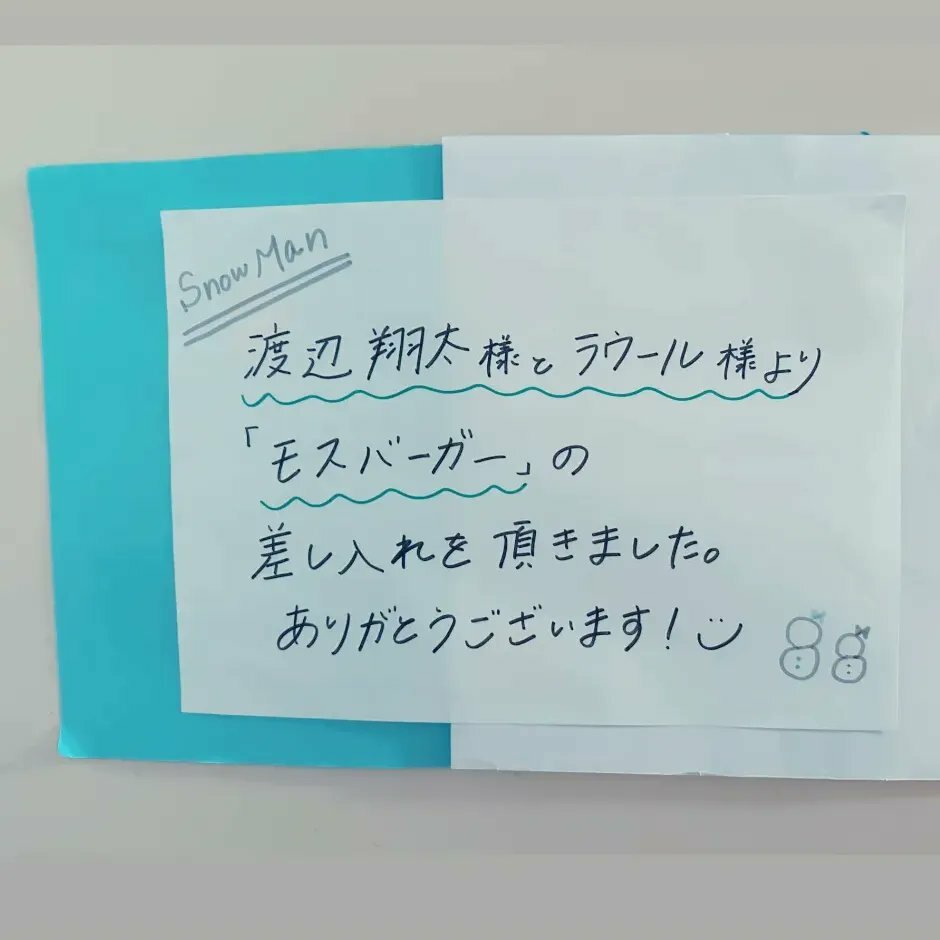 Snow Man
渡辺翔太様とラウール様より
「モスバーガー」の
差し入れを頂きました。
ありがとうございます!